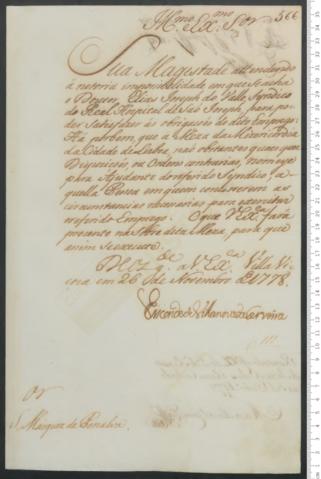 Ill.mo e Ex.mo Snr.
366
Sua Magestade attendendo
á notoria impossibilidade em que se acha
o Doutor Elias Joseph do Valle Syndico
do Real Hospital de Sam Joseph, para po-
der satisfazer as obrigaçoens do dito Emprego:
Ha por bem que a Meza da Mizericordia
da Cidade de Lisboa, naõ obstantes quaesquer
Dispoziçoens, ou Ordens contrarias, nomeye
para Ajudante do referido Syndico, a-
quella Pessoa em quem concorrerem as
circumstancias necessarias para exercitar
o referido Emprego. O que V. Ex.ca fará
prezente na sobre dita Meza, para que
assim se execute.
Deos g.de a V. Ex.ca Villa Vi-
coza em 26 de Novembro de 1778.
Visconde de Villanova da Cerveira
Snr.
S. Marquez de Penalva.